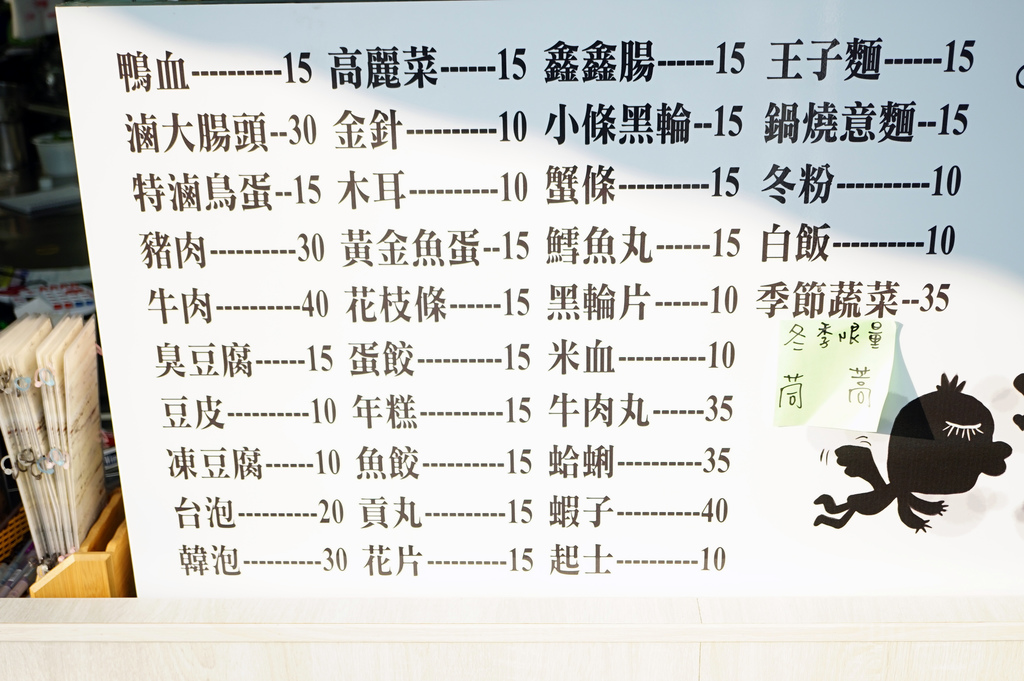 鴨血----------15 高麗菜------15 鑫鑫腸------15 王子麵------15
滷大腸頭--30 金針----------10 小條黑輪--15 鍋燒意麵--15
特滷鳥蛋--15 木耳----------10 蟹條----------15 冬粉----------10
豬肉----------30 黃金魚蛋--15 鱈魚丸------15 白飯----------10
牛肉----------40 花枝條------15 黑輪片------10 季節蔬菜--35
臭豆腐------15 蛋餃----------15 米血----------10
豆皮----------10 年糕----------15 牛肉丸------35
凍豆腐------10 魚餃----------15 蛤蜊----------35
台泡----------20 貢丸----------15 蝦子----------40
韓泡----------30 花片----------15 起士----------10
冬季限量
茼 蒿